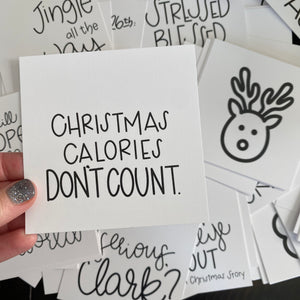 Jingle
all the
Way
26th
STRESSED
BLESSED
CHRISTMAS
CALORIES
DON'T COUNT.
World
Clark?
OUT
Christmas Story